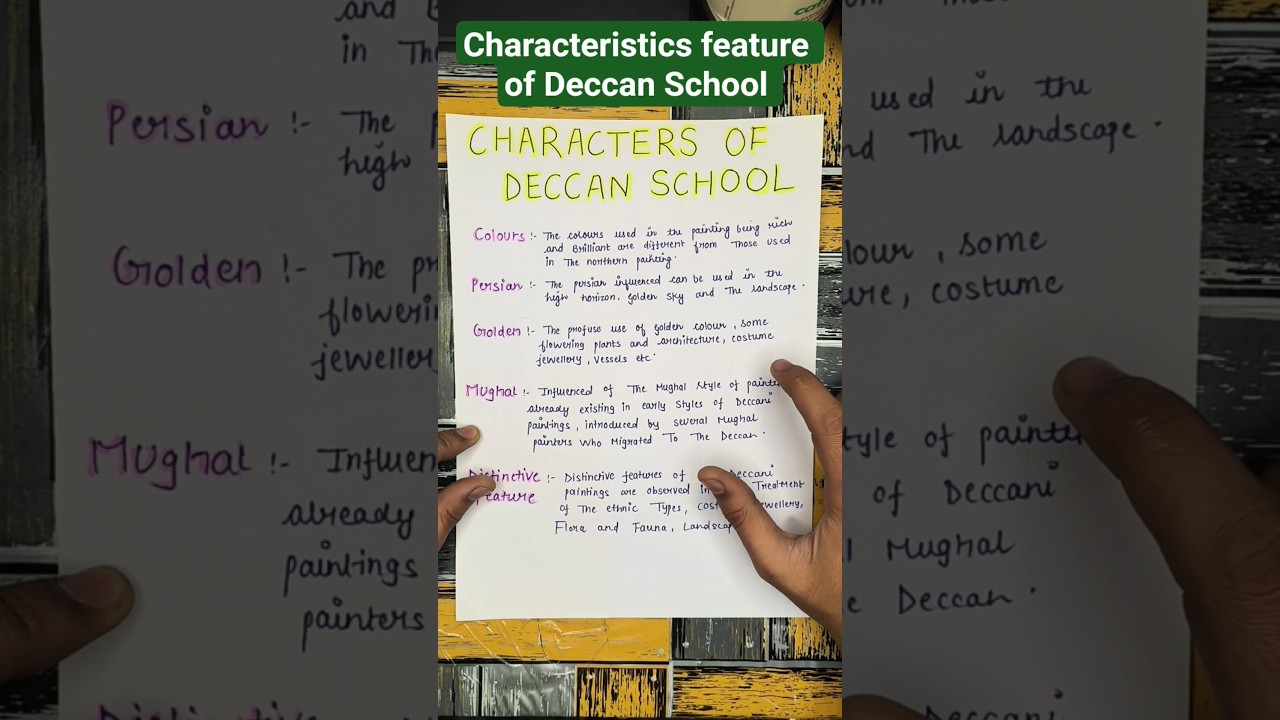 Characteristics feature
of Deccan School
CHARACTERS OF
DECCAN SCHOOL
Colours :- The colours used in the painting being rich
and Brilliant are different from Those used
in The northern painting.
Persian :- The persian influenced can be used in the
high horizon, golden sky and The landscape.
Golden :- The profuse use of golden colour, some
flowering plants and architecture, costume
jewellery, vessels etc.
Mughal :- Influenced of The Mughal style of
already existing in early styles of Deccani
paintings, introduced by several Mughal
painters who Migrated To The Deccan.
Distinctive :- Distinctive features of Deccani
feature paintings are observed in Treatment
of The ethnic Types,
Flora and Fauna,